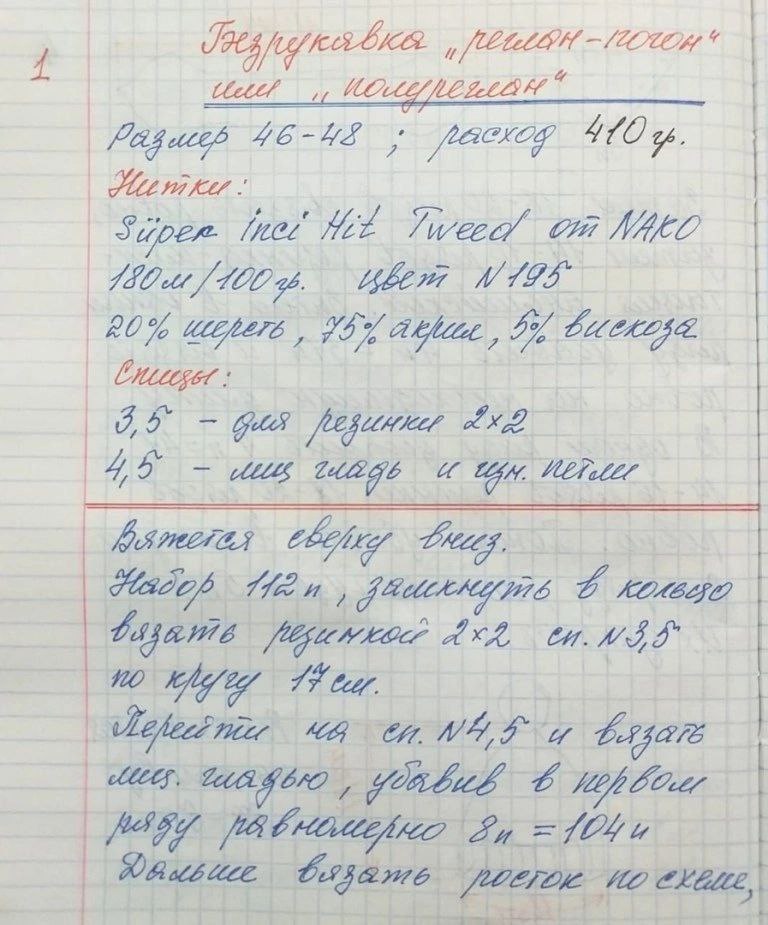 1
Безрукавка „реглан-погон“
или „полуреглан“
Размер 46-48 ; расход 410 гр.
Нитки:
Süper inci Hit Tweed от NAKO
180м/100гр. цвет N195
20% шерсть, 75% акрил, 5% вискоза
Спицы:
3,5 - для резинки 2×2
4,5 - лиц гладь и изн. петли
Вяжется сверху вниз.
Набор 112п, замкнуть в кольцо
вязать резинкой 2×2 сп. N3,5
по кругу 17см.
Перейти на сп. N4,5 и вязать
лиц. гладью, убавив в первом
ряду равномерно 8п = 104п
Дальше вязать росток по схеме,